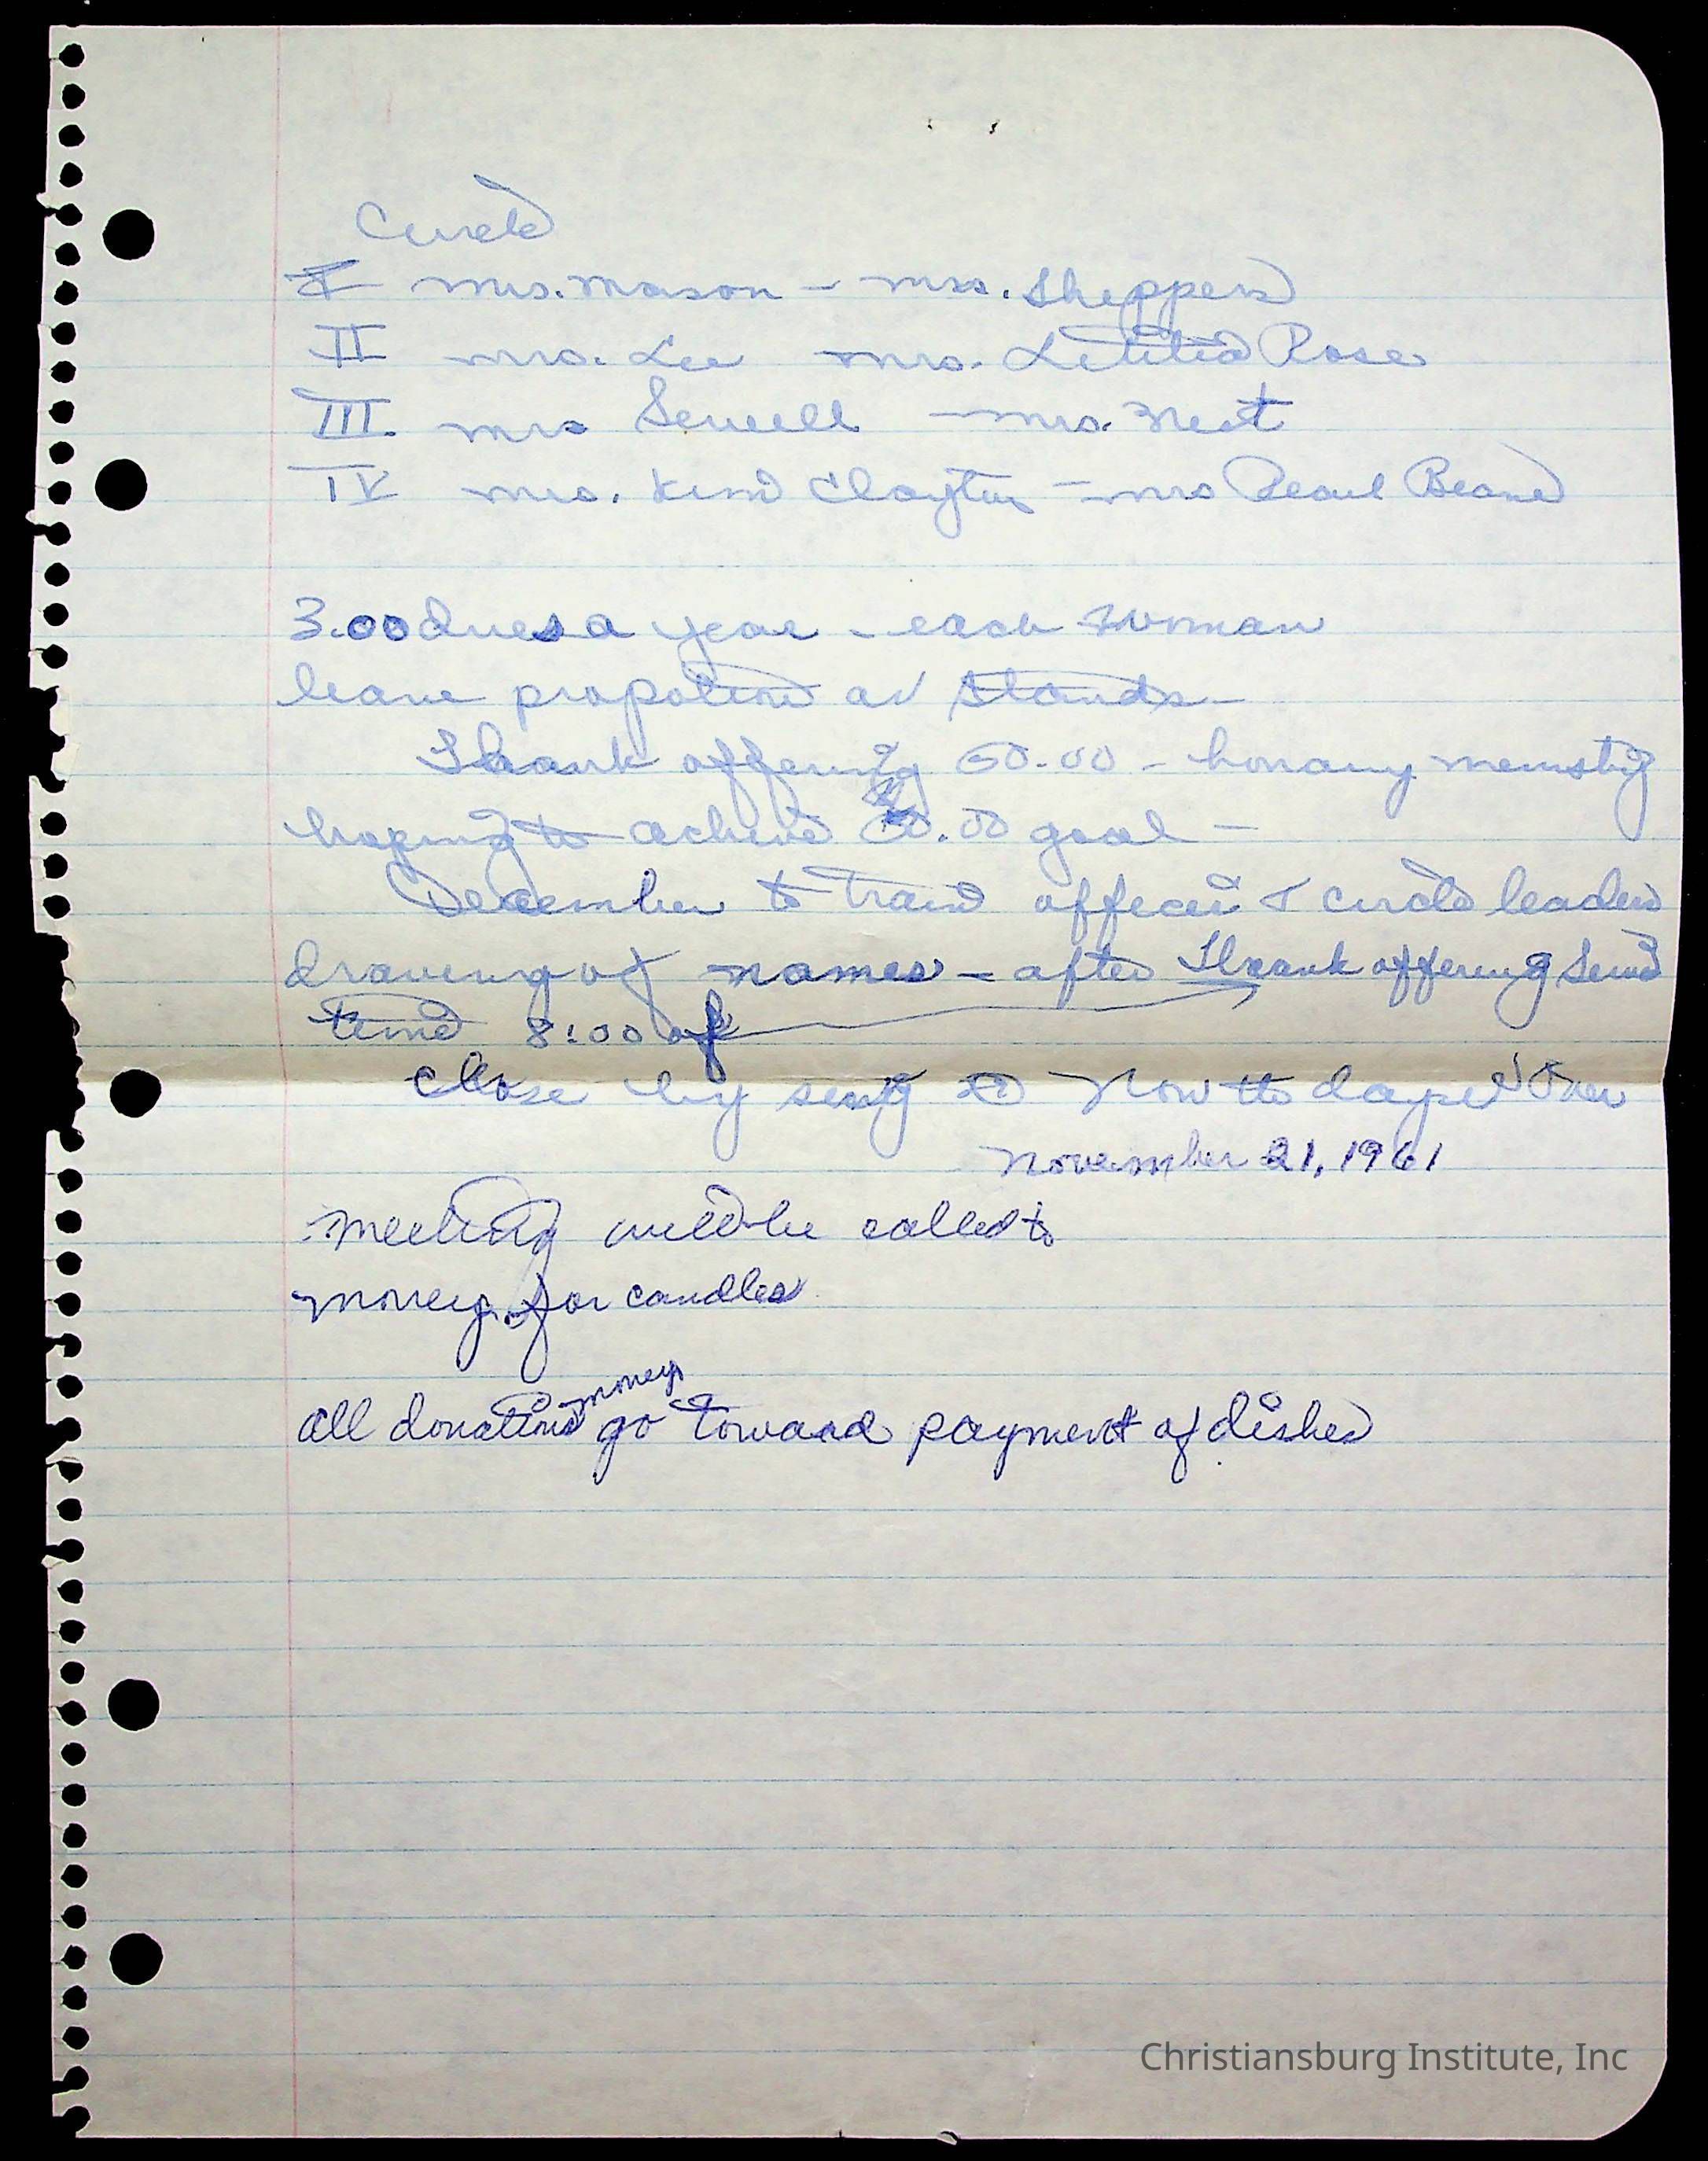 Circle
I Mrs. Mason - Mrs. Sheppers
II Mrs. Lee Mrs. Letitia Rose
III. Mrs Sewell - Mrs.
IV Mrs. Clayton - Mrs Pearl Beane
3.00 dues a year - each woman
leave as stands -
Thank offering 60.00 - honary
hoping to achive .00 goal -
December to train officers & circle leaders
drawing of names - after Thank offering
time 8:00 of
close by Now the day is Over
November 21, 1961
meeting will be called to
money for candles
money
all donations go toward payment of dishes
Christiansburg Institute, Inc